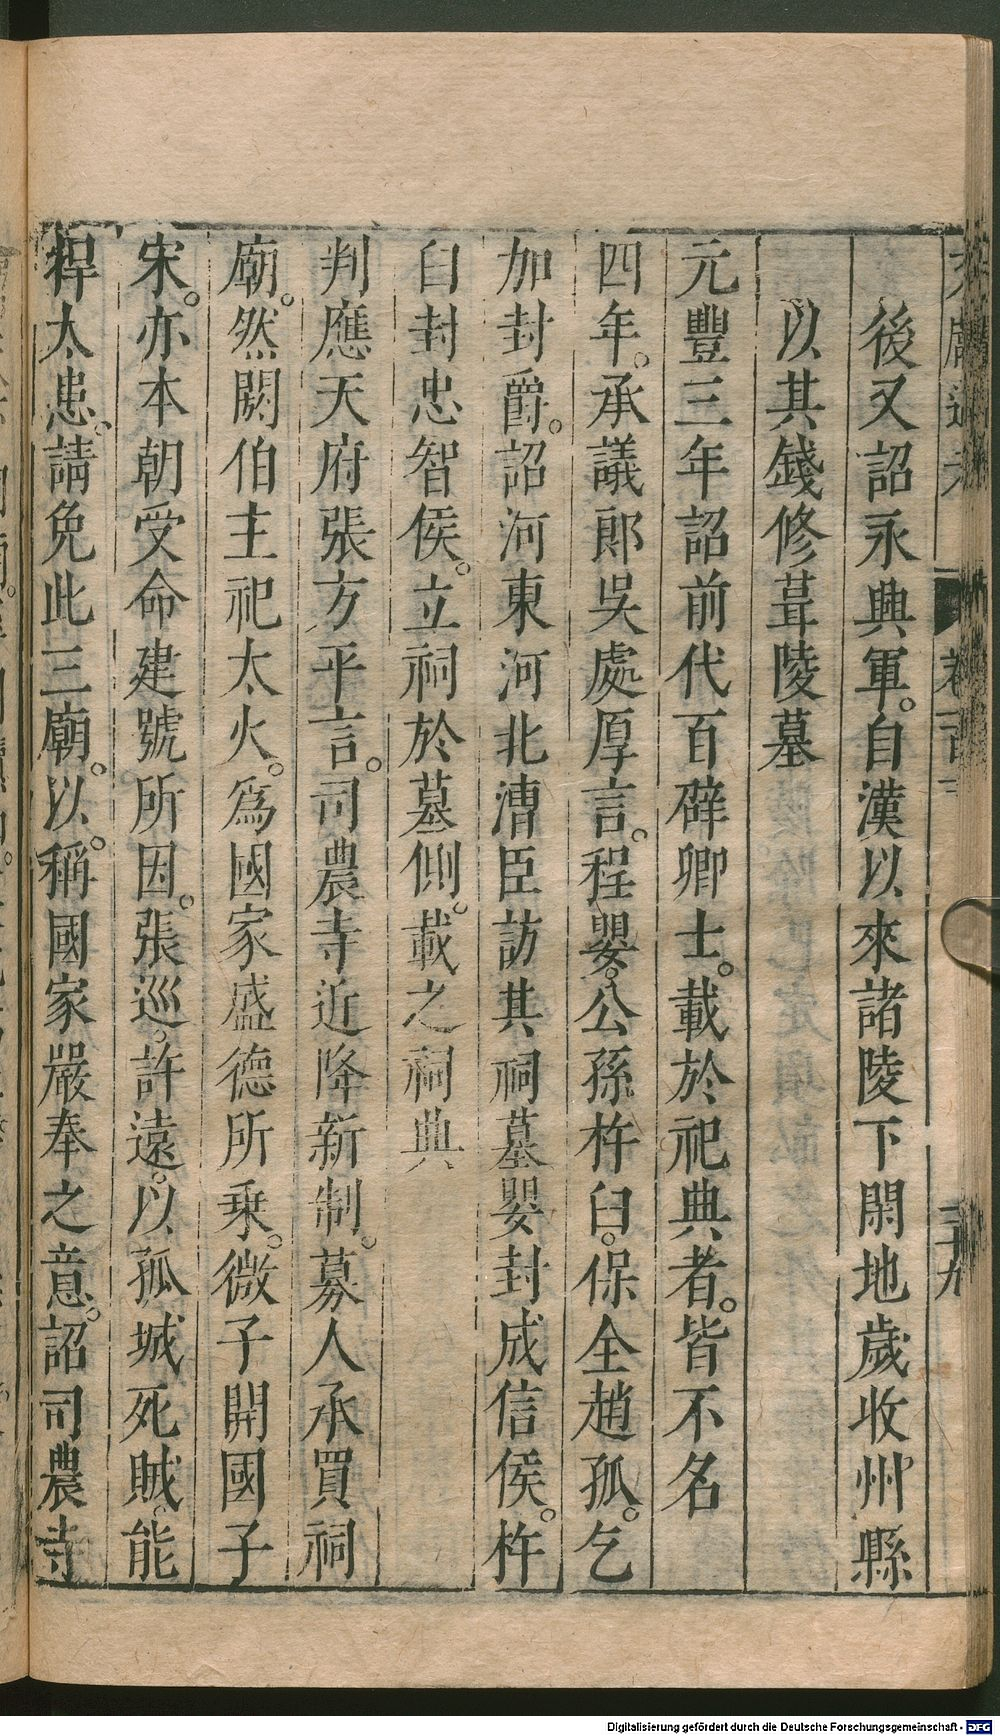 後又詔永興軍。自漢以來諸陵下閑地歲收州縣
以其錢修葺陵墓
元豐三年詔前代百辟卿士。載於祀典者。皆不名
四年。承議郎吳處厚言。程嬰。公孫杵臼。保全趙孤。乞
加封爵。詔河東河北漕臣訪其祠墓嬰封成信侯。杵
臼封忠智侯。立祠於墓側。載之祠典
判應天府張方平言。司農寺近降新制。募人承買祠
廟。然閼伯主祀太火。為國家盛德所乗。微子開國子
宋。亦本朝受命建號所因。張巡。許遠。以孤城死賊。能
捍大患。請免此三廟。以。稱國家嚴奉之意。詔司農寺
Digitalisierung gefördert durch die Deutsche Forschungsgemeinschaft - DFG